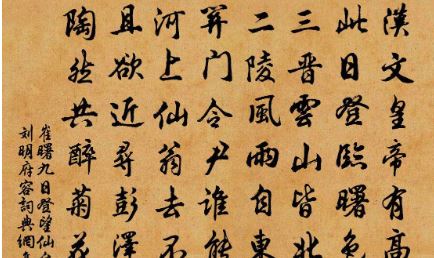 漢文皇帝有高
此日登臨曙色
三晉雲山皆北
二陵風雨自東
關门令尹誰能
河上仙翁去不
且欲近尋彭澤
陶然共醉菊花
崔曙九日登望仙
刘明府容詞典網